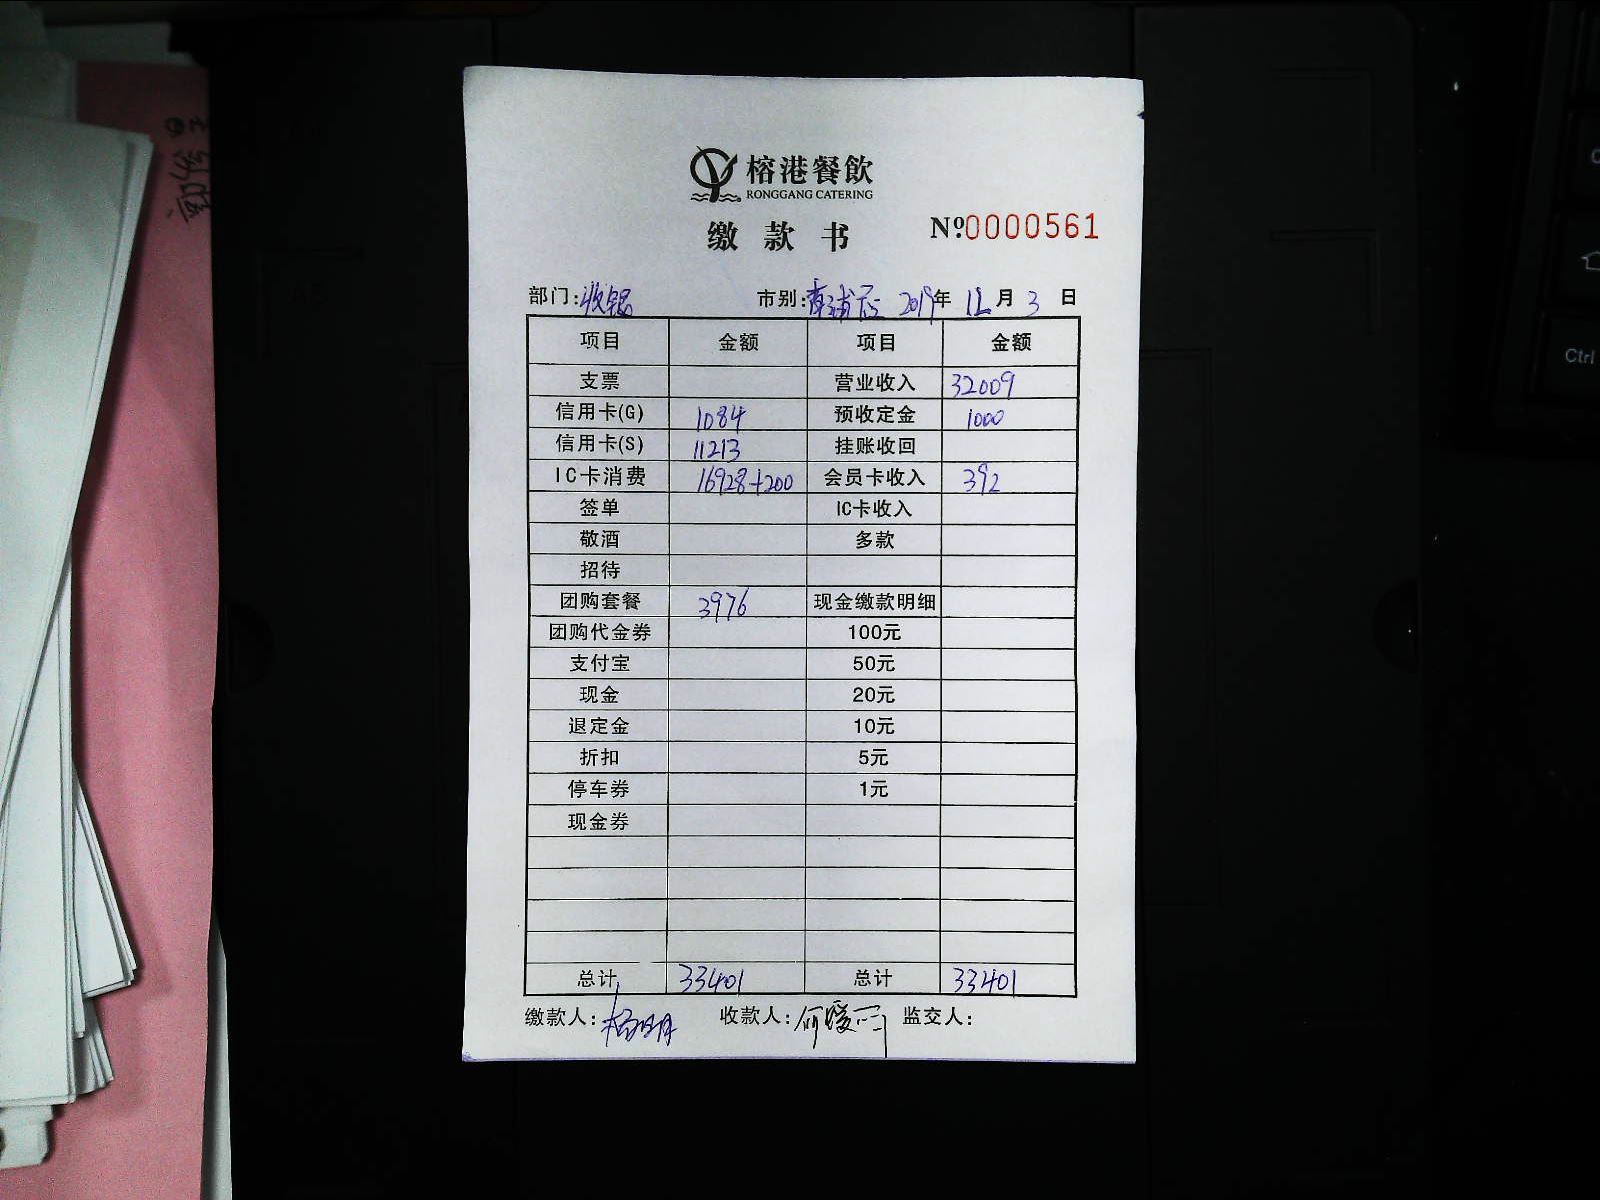 榕港餐飲
RONGGANG CATERING
缴款书 №0000561
部门:收银 市别:南浦店 2019年 12月 3日
项目 金额 项目 金额
支票 营业收入 32009
信用卡(G) 1084 预收定金 1000
信用卡(S) 11213 挂账收回
IC卡消费 16928+200 会员卡收入 392
签单 IC卡收入
敬酒 多款
招待
团购套餐 3976 现金缴款明细
团购代金券 100元
支付宝 50元
现金 20元
退定金 10元
折扣 5元
停车券 1元
现金券
总计 33401 总计 33401
缴款人: 收款人:何暖 监交人:
Ctrl